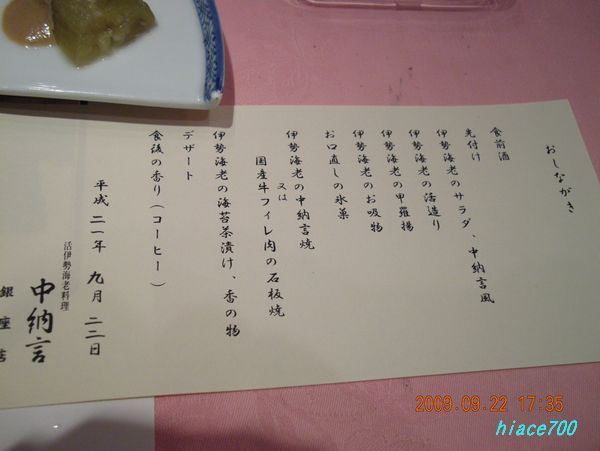 おしながき
食前酒
先付け
伊勢海老のサラダ、中納言風
伊勢海老の活造り
伊勢海老の甲羅揚
伊勢海老のお吸物
お口直しの氷菓
伊勢海老の中納言焼
又は
国産牛フィレ肉の石板焼
伊勢海老の海苔茶漬け、香の物
デザート
食後の香り(コーヒー)
平成二一年九月二二日
活伊勢海老料理
中納言
銀座店
2009.09.22 17:35
hiace700